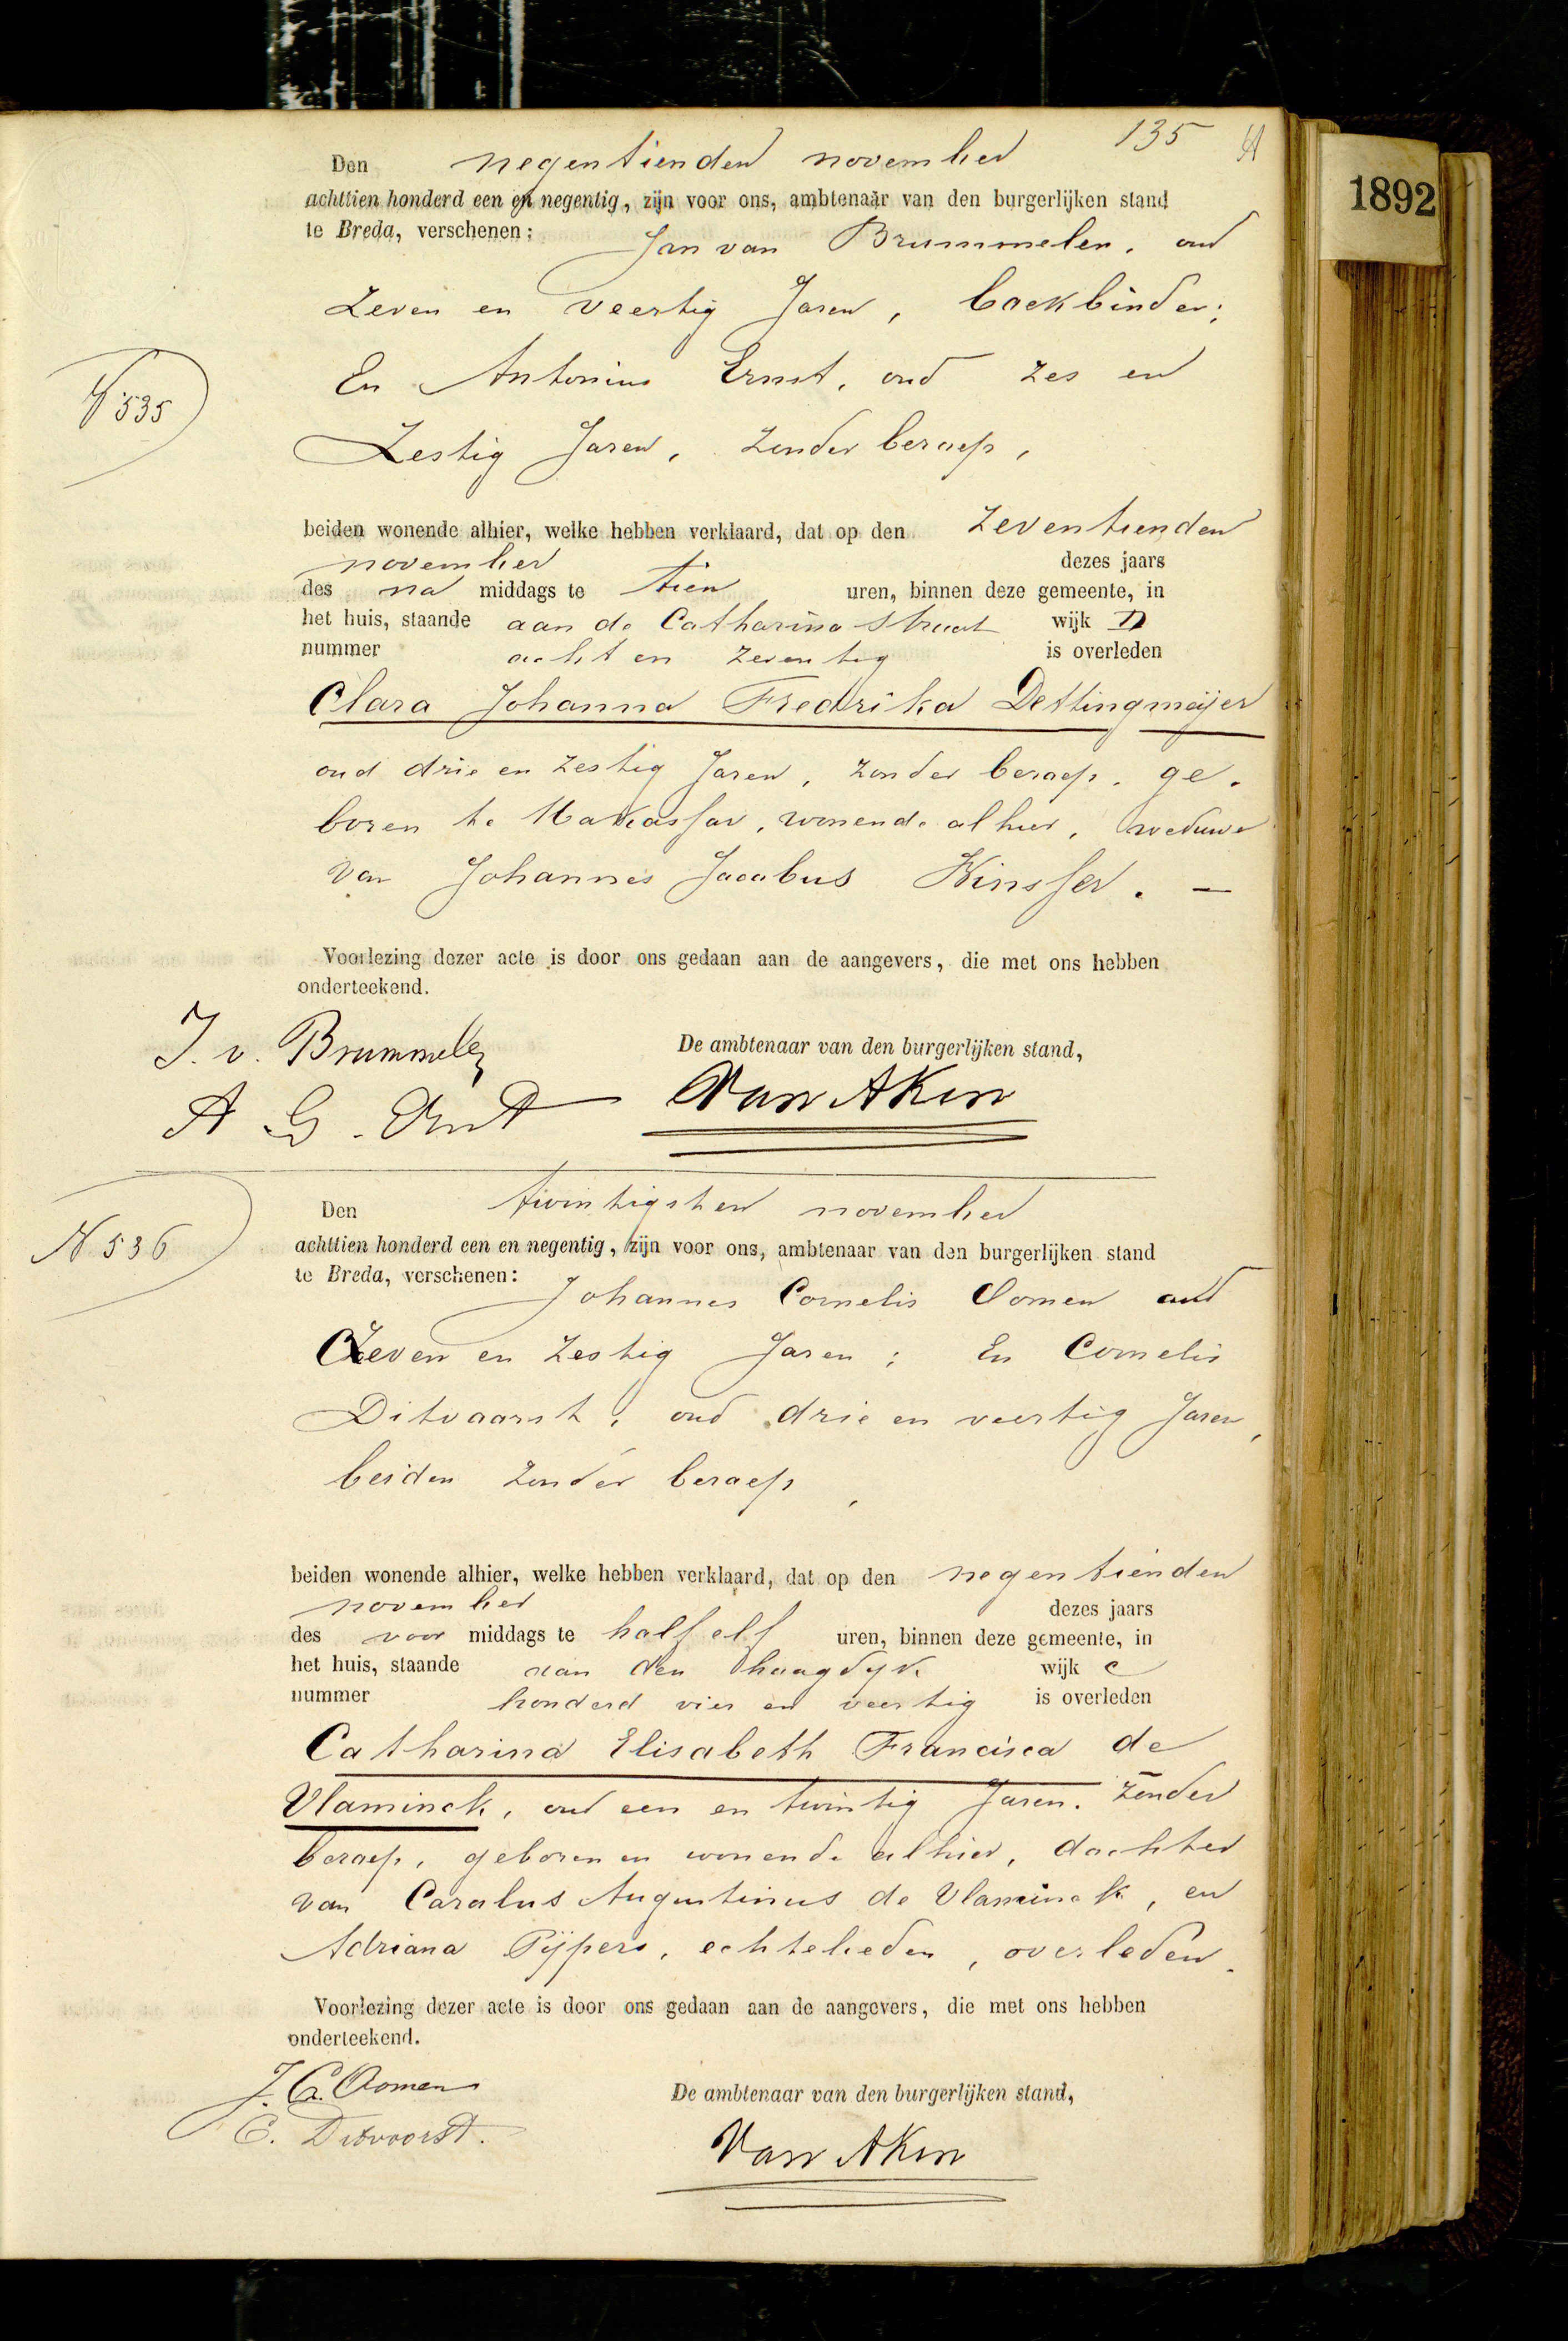 135
1892
Den negentienden november
achttien honderd een en negentig, zijn voor ons, ambtenaar van den burgerlijken stand
te Breda, verschenen: Jan van Brummelen, oud
zeven en veertig Jaren, boekbinder;
N 535
En Antonius Ernst, oud zes en
Zestig Jaren, zonder beroep,
beiden wonende alhier, welke hebben verklaard, dat op den zeventienden
november dezes jaars
des na middags te tien uren, binnen deze gemeente, in
het huis, staande aan de Catharina straat wijk D
nummer acht en zeventig is overleden
Clara Johanna Fredrika Dettingmeijer
oud drie en zestig Jaren, zonder beroep, ge-
boren te Makassar, wonende alhier, weduwe
van Johannes Jacobus Kinsser. —
Voorlezing dezer acte is door ons gedaan aan de aangevers, die met ons hebben
onderteekend.
J. v. Brummelen
De ambtenaar van den burgerlijken stand,
A G. Ernst
Van Aken
N 536
Den twintigsten november
achttien honderd een en negentig, zijn voor ons, ambtenaar van den burgerlijken stand
te Breda, verschenen: Johannes Cornelis Oomen oud
Zeven en zestig Jaren; En Cornelis
Ditvoorst, oud drie en veertig Jaren,
beiden zonder beroep,
beiden wonende alhier, welke hebben verklaard, dat op den negentienden
november dezes jaars
des voor middags te half elf uren, binnen deze gemeente, in
het huis, staande aan den haagdijk wijk C
nummer honderd vier en veertig is overleden
Catharina Elisabeth Francisca de
Vlaminck, oud een en twintig Jaren. zonder
beroep, geboren en wonende alhier, dochter
van Carolus Augustinus de Vlaminck, en
Adriana Pijpers, echtelieden, overleden.
Voorlezing dezer acte is door ons gedaan aan de aangevers, die met ons hebben
onderteekend.
J. C. Oomen
De ambtenaar van den burgerlijken stand,
C. Ditvoorst.
Van Aken